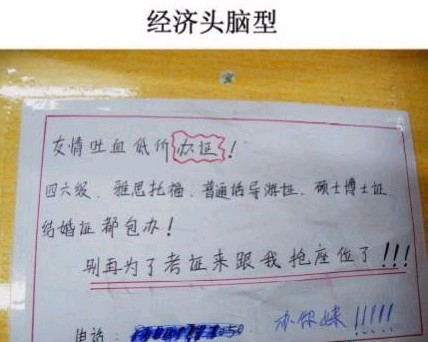 经济头脑型
友情吐血低价办证!
四六级、雅思托福、普通话导游证、硕士博士证
结婚证都包办!
别再为了考证来跟我抢座位了!!!
电话: 050
办你妹!!!!!